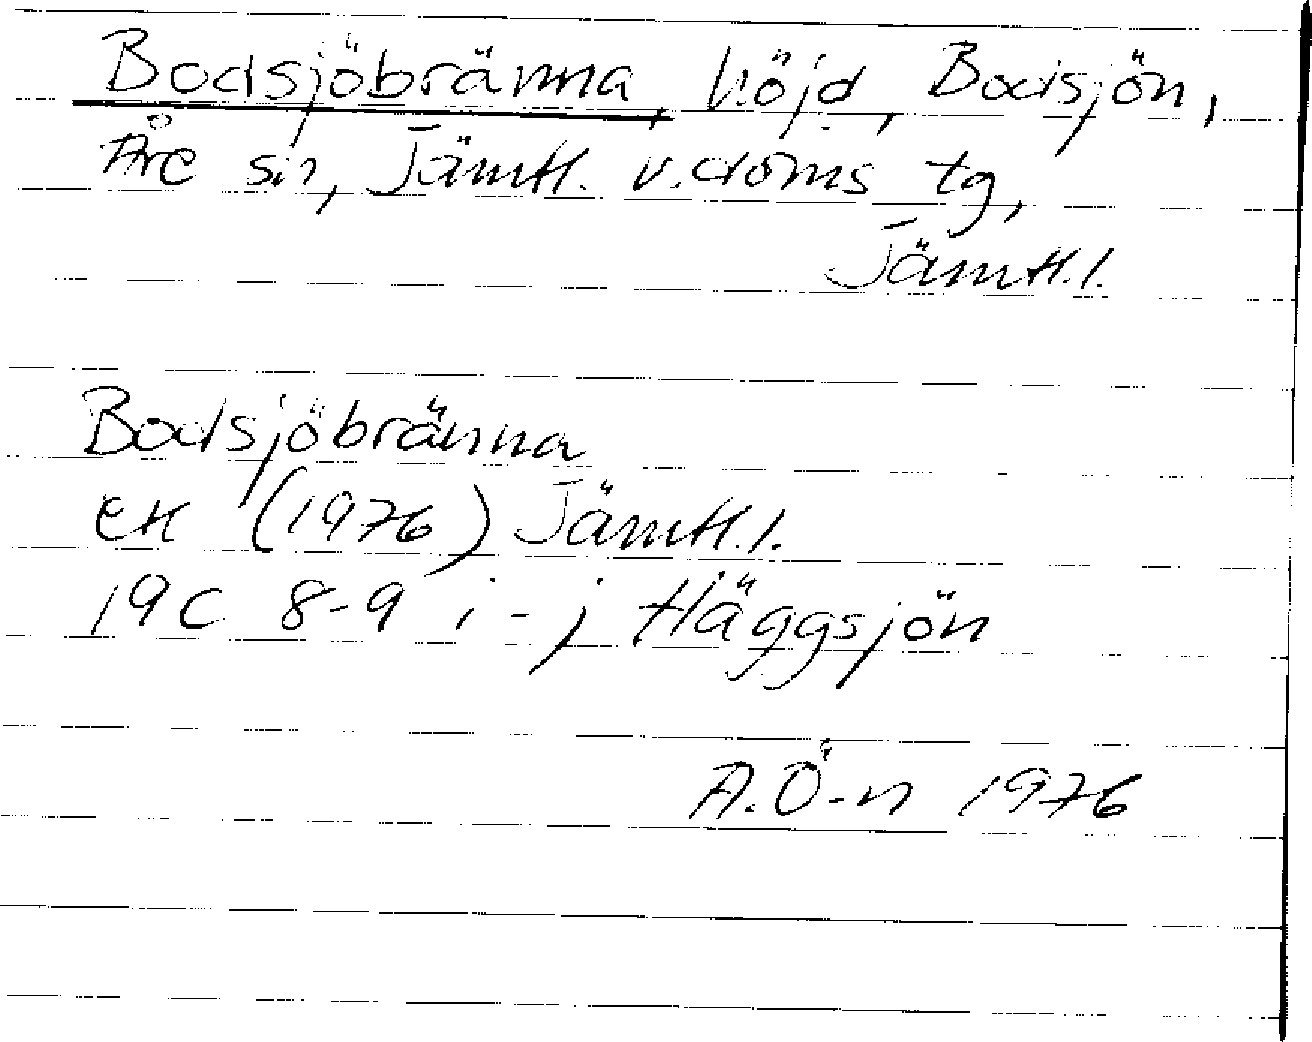 Bodsjöbränna, höjd, Bodsjön,
Åre sn, Jämtl. v. doms tg,
Jämtl. l.
Bodsjöbränna
EK (1976) Jämtl. l.
19C 8-9 i-j Häggsjön
A. Ö-n 1976